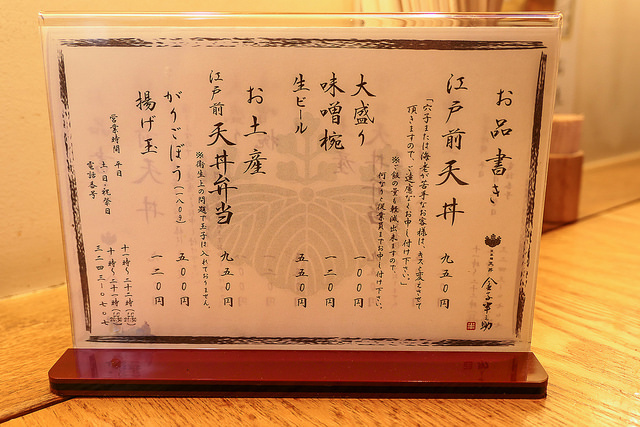 お品書き
金子半之助
江戸前天丼 九五〇円
「穴子または海老が苦手なお客様は、キスに変えさせて
頂きますので、ご遠慮なくお申し付け下さい。」
※ご飯の量も軽減出来ますので、
何なりと従業員までお申し付け下さい。
大盛り 一〇〇円
味噌椀 一二〇円
生ビール 五五〇円
お土産
江戸前天丼弁当 九五〇円
※衛生上の問題で玉子は入れておりません。
がりごぼう(一八〇g) 五〇〇円
揚げ玉 一二〇円
営業時間 平日 十一時〜二十二時
土・日・祝祭日 十時〜二十一時
電話番号 三二四三-〇七〇七